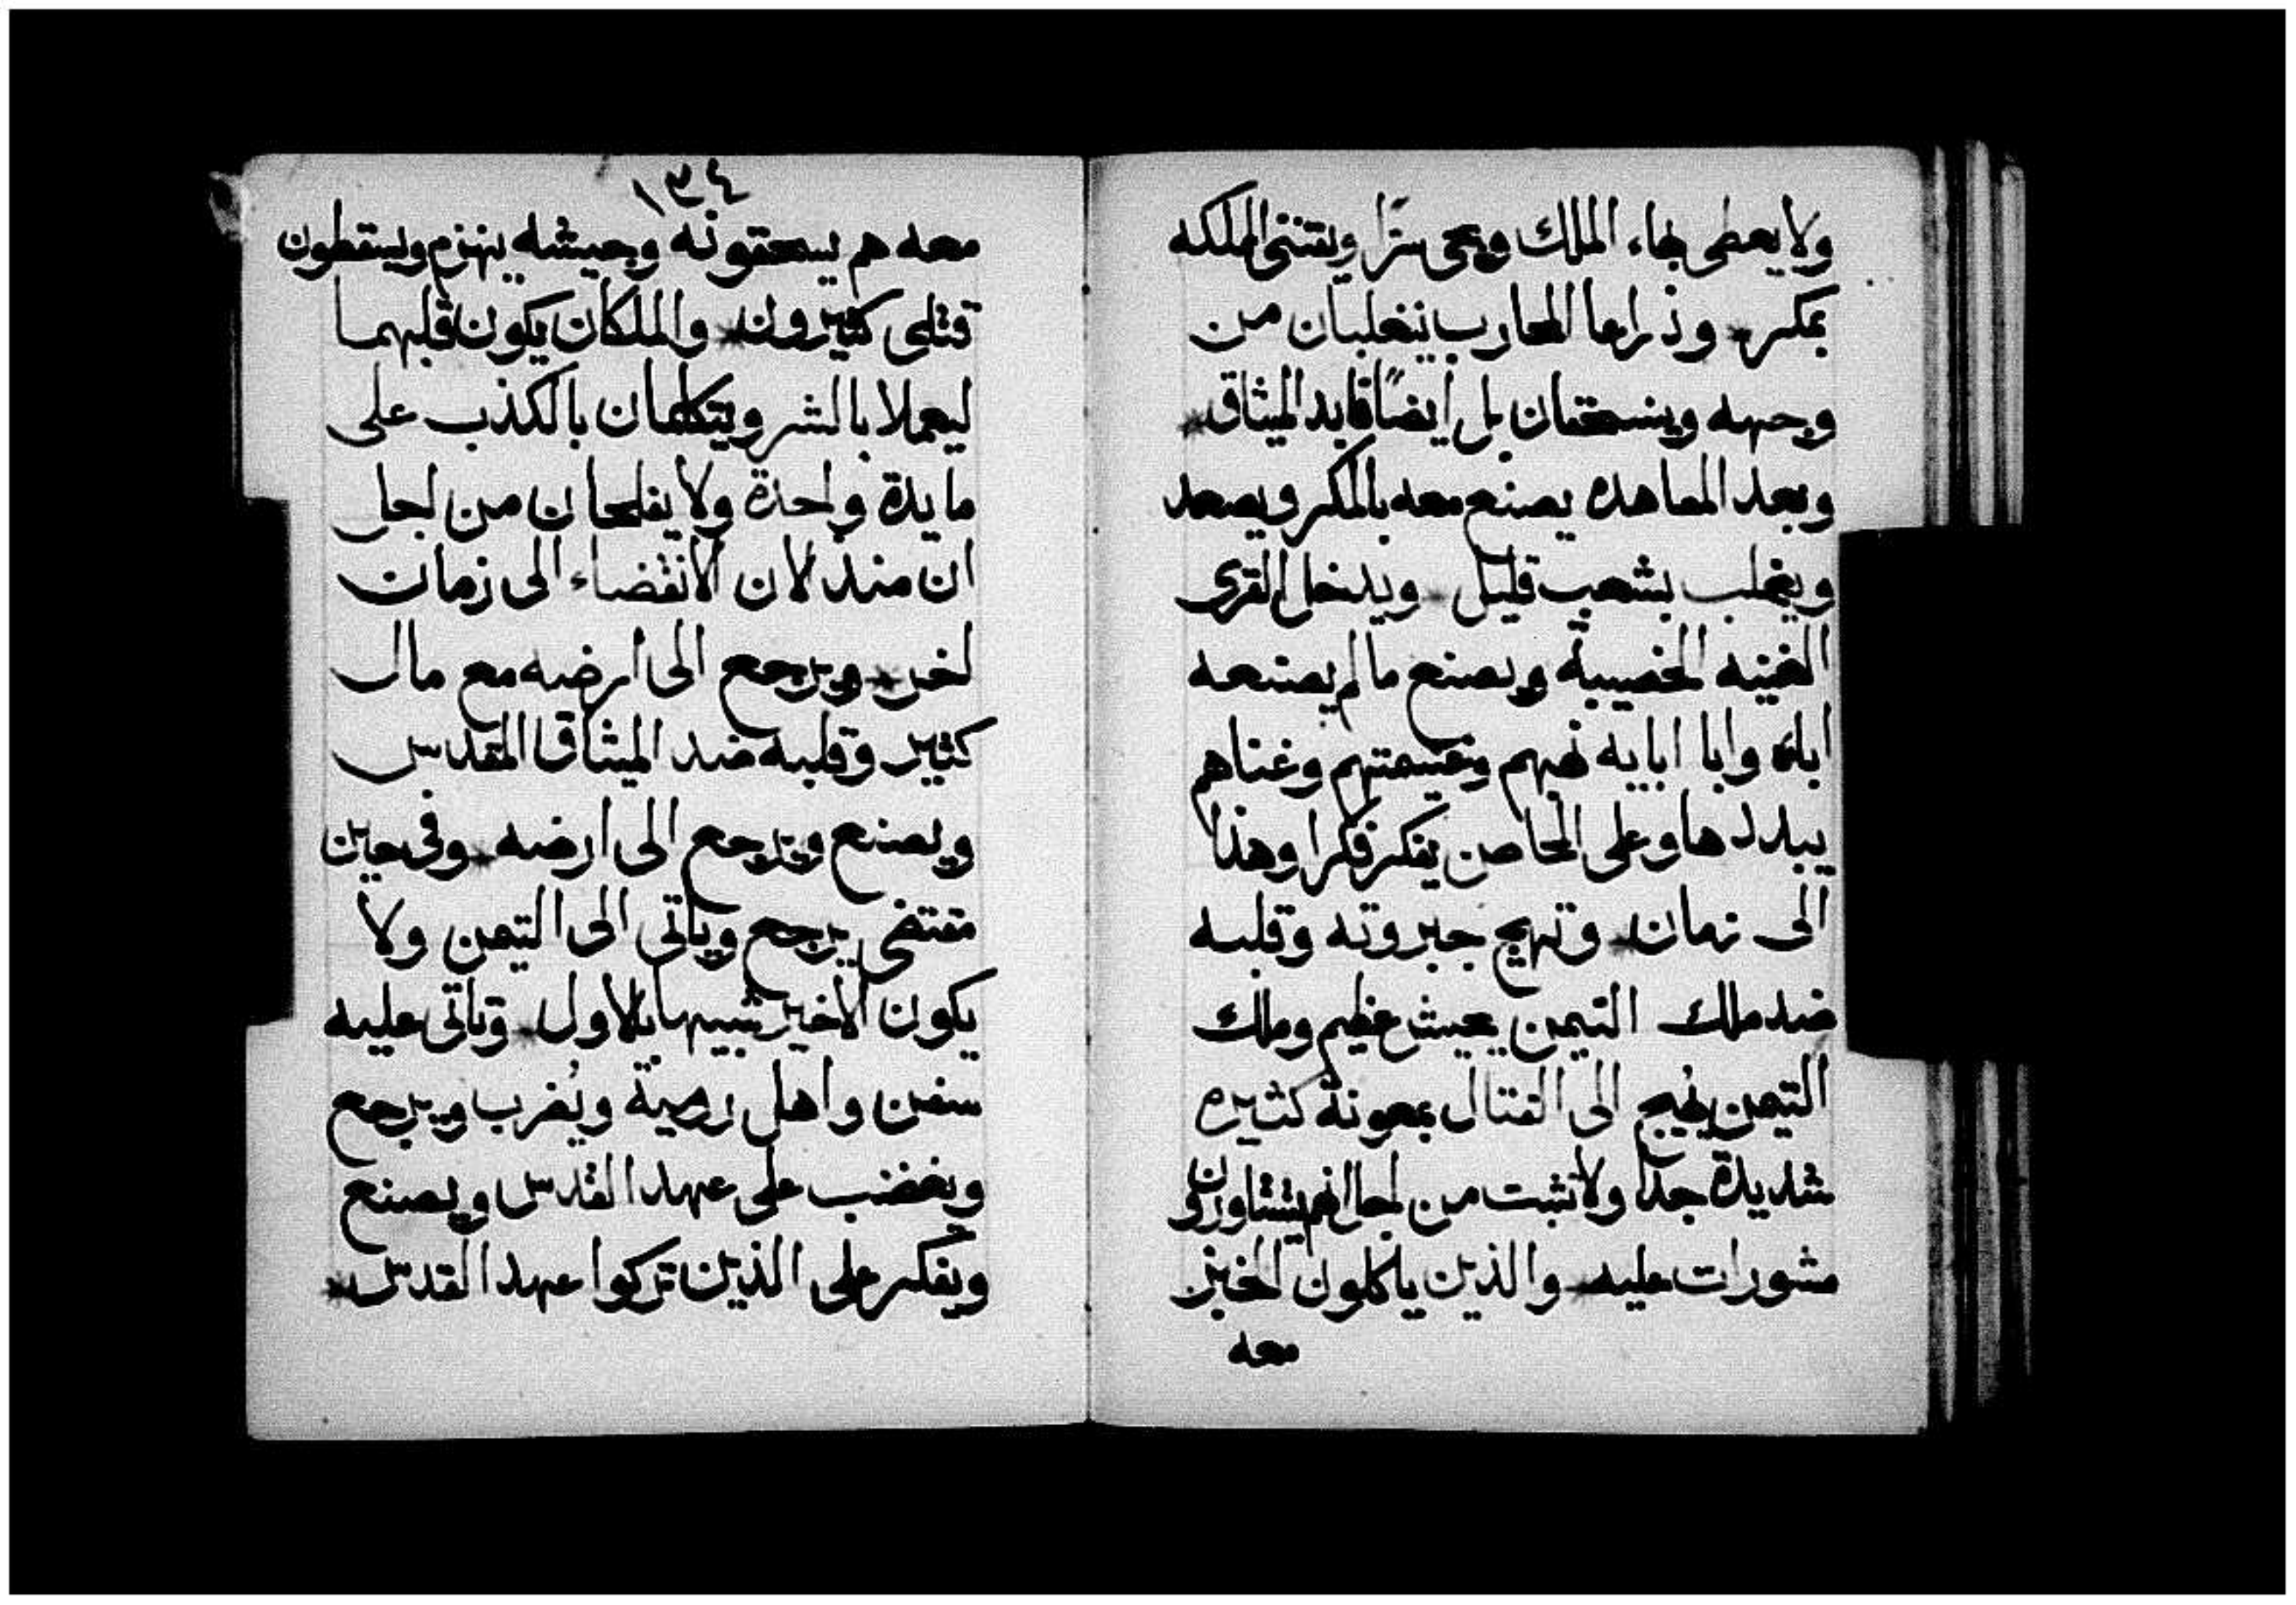 ولا يعطى بهاء الملك ويجى سرًا ويقتنى المملكه
بمكر * وذراعا المحارب ينغلبان من
وجهه وينسحقان بل ايضًا قايد الميثاق *
وبعد المعاهده يصنع معه بالمكر ويصعد
ويغلب بشعب قليل * ويدخل القرى
الغنيه الخصيبة ويصنع ما لم يصنعه
اباه وابا ابايه نهبهم وغنيمتهم وغناهم
يبددها وعلى الحاصن يفكر فكرا وهذا
الى زمان * وتهيج جبروته وقلبه
ضد ملك التيمن بجيش عظيم وملك
التيمن يهيج الى القتال بمعونة كثيره
شديدة جدا ولا تثبت من اجل انهم يتشاورون
مشورات عليه * والذين ياكلون الخبز
معه
١٣٤
معه هم يسحقونه وجيشه ينهزم ويسقطون
قتلى كثيرون * والملكان يكون قلبهما
ليعملا بالشر ويتكلمان بالكذب على
مايدة واحدة ولا يفلحان من اجل
ان منذ لان الانقضاء الى زمان
اخر * ويرجع الى ارضه مع مال
كثير وقلبه ضد الميثاق المقدس
ويصنع ويرجع الى ارضه * وفى حين
مقتضى يرجع وياتى الى التيمن ولا
يكون الاخير شبيها بالاول * وتاتى عليه
سفن واهل رومية ويُضرب ويرجع
ويغضب على عهد القدس ويصنع
ويفكر على الذين تركوا عهد القدس *